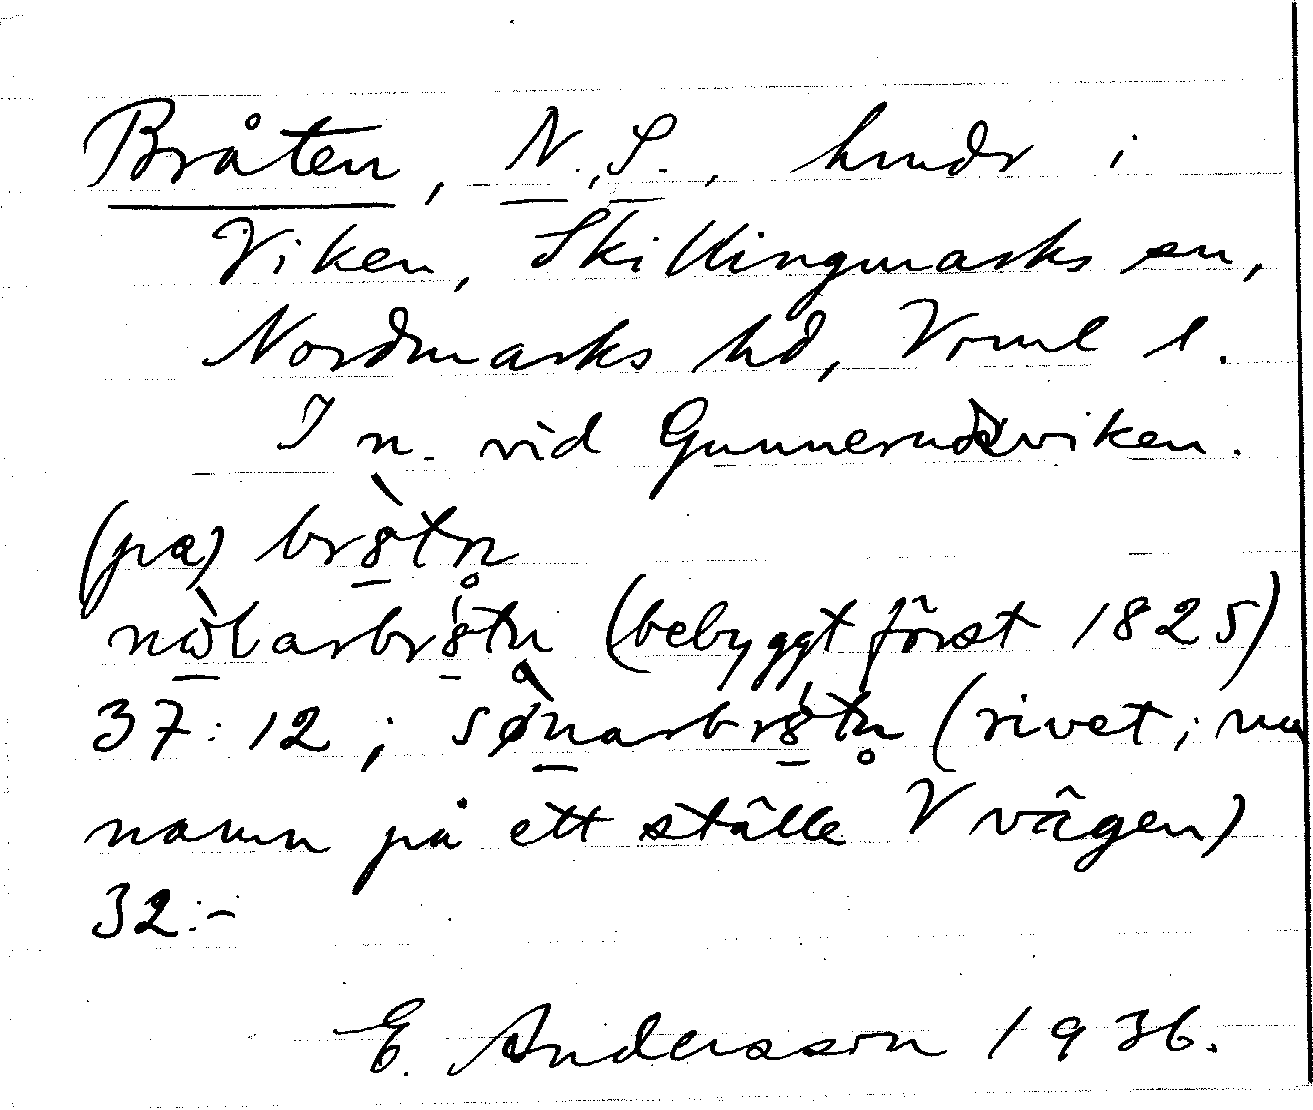 Bråten, N., S., hmdr i
Viken, Skillingmarks sn,
Nordmarks hd, Vrml l.
I n. vid Gunnerudsviken.
(pa) br8̀tn̥
nωlarbr8tn̥ (bebyggt först 1825)
37:12; sønarbr8tn̥ (rivet; nu
namn på ett ställe V vägen)
32:-
E. Andersson 1936.